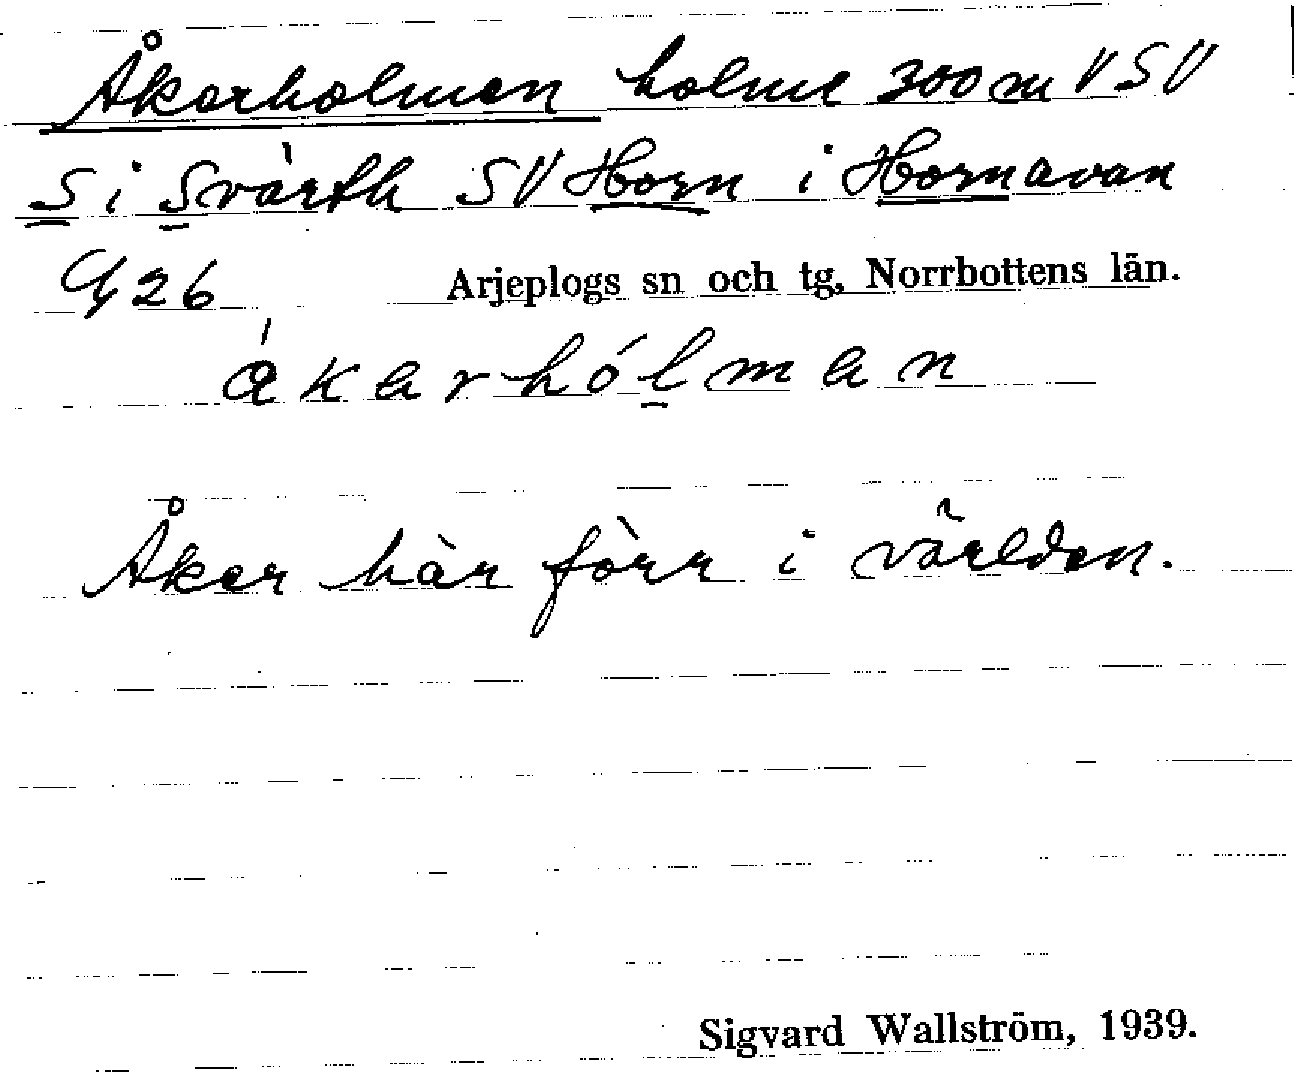 Åkerholmen holme 300 m VSV
S i Svärth SV Horn i Hornavan
G 26 Arjeplogs sn och tg, Norrbottens län.
ákarhólman
Åker här förr i världen.
Sigvard Wallström, 1939.